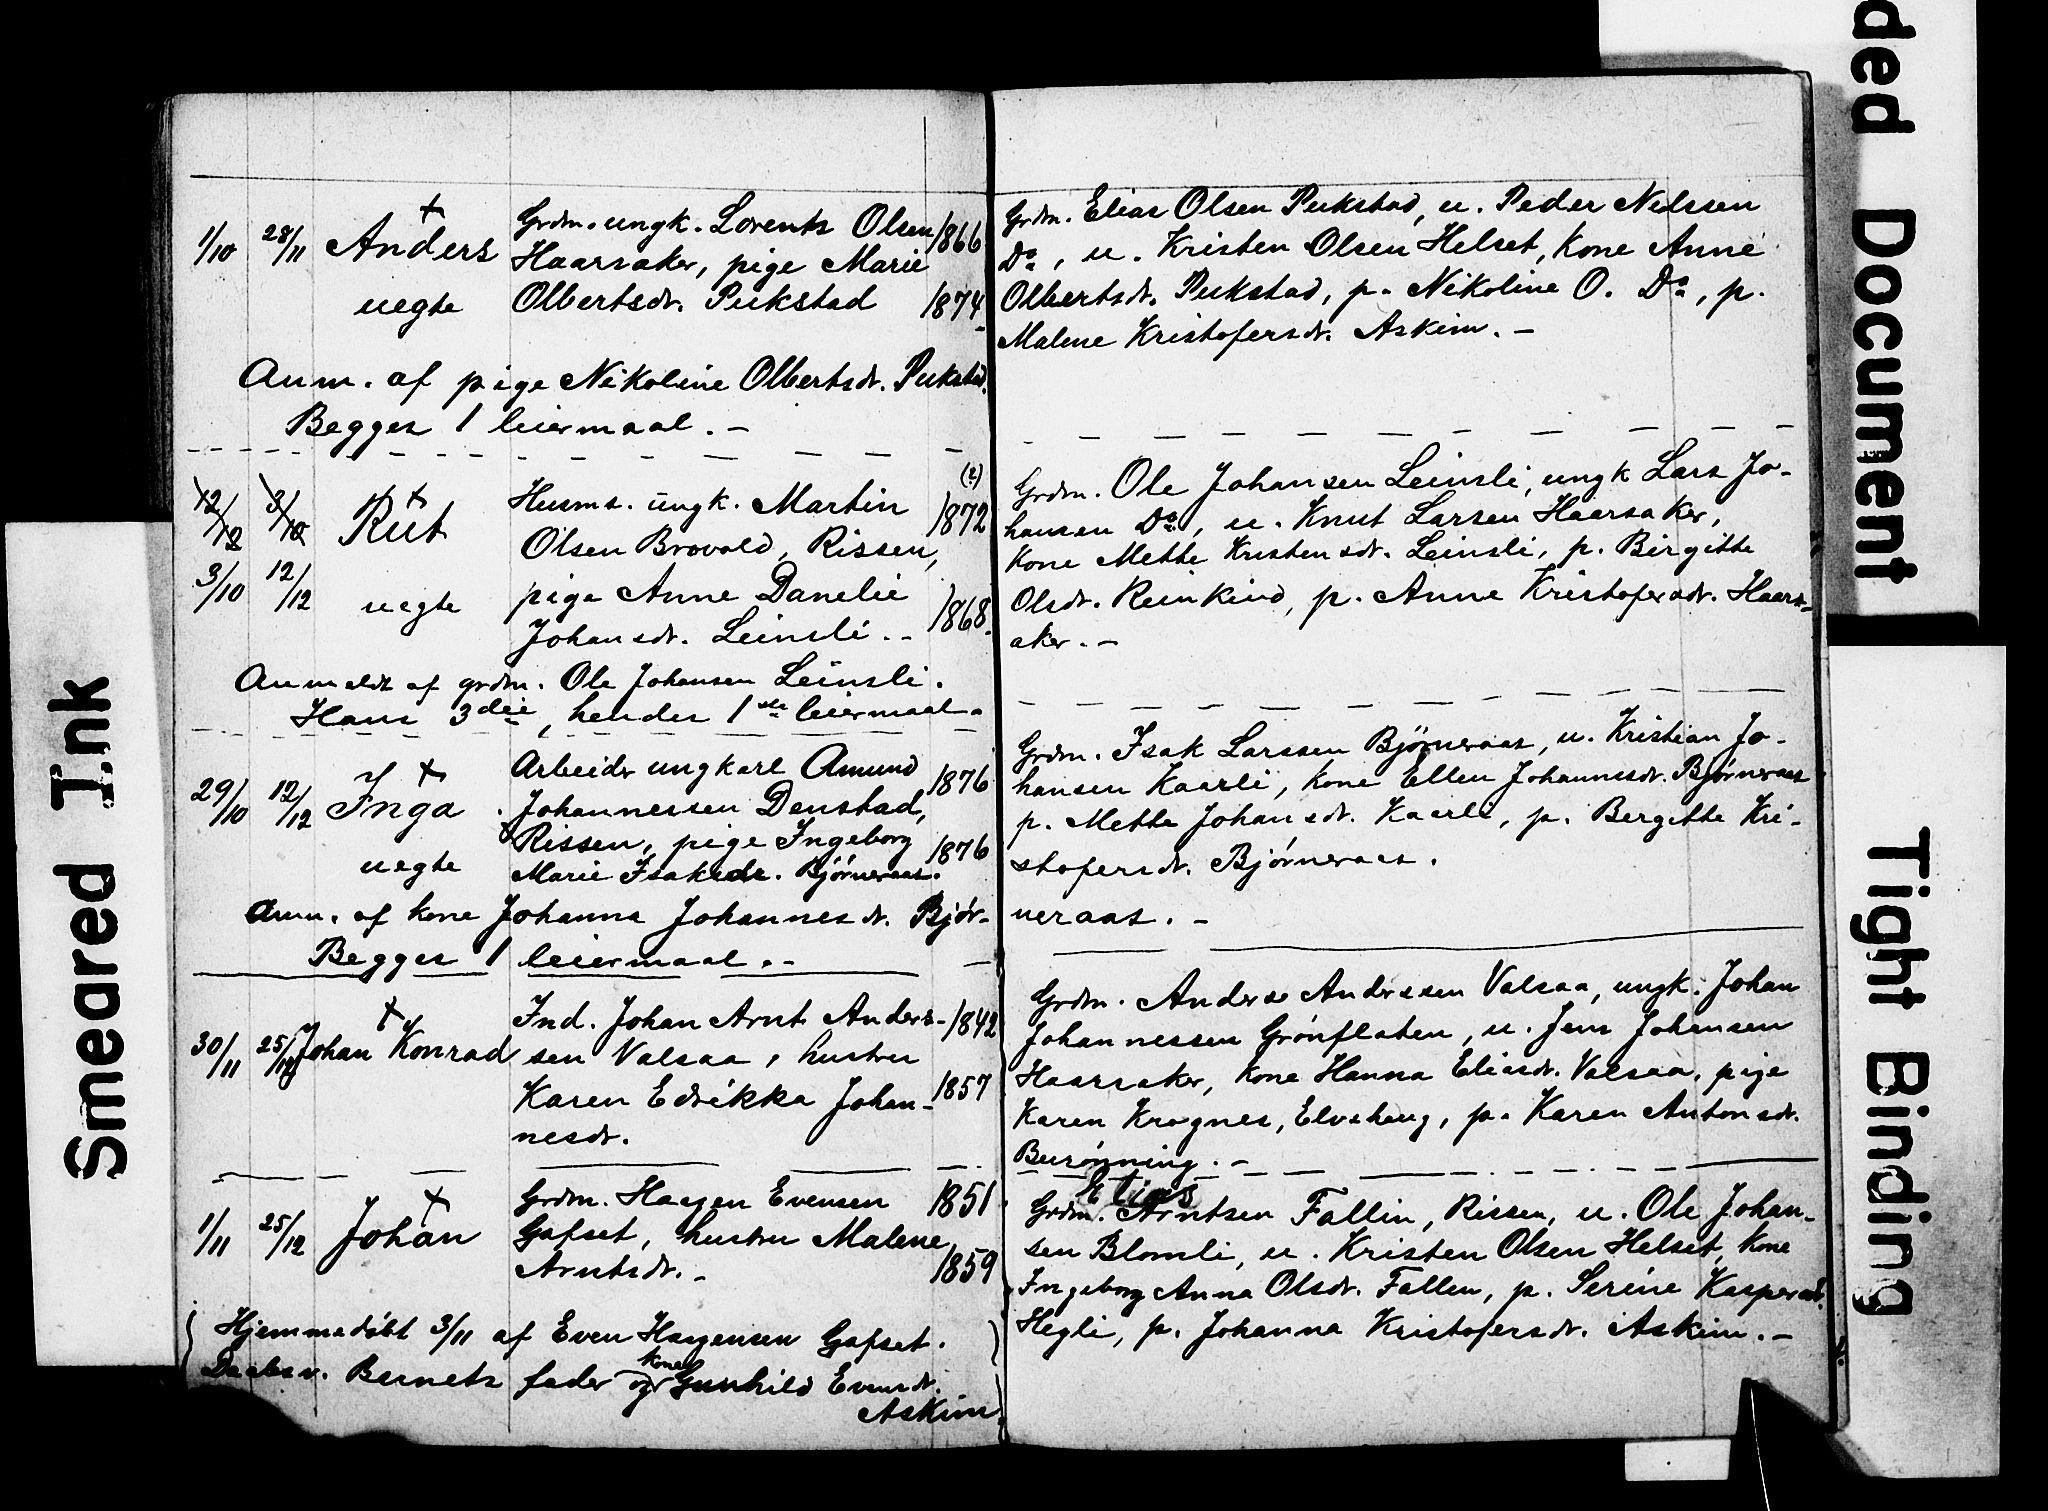 1/10 28/11 Anders Grdm. ungk. Lorents Olsen 1866
Haarsaker, pige Marie
uegte Olbertsdr. Pukstad 1874
Anm. af pige Nikoline Olbertsdr. Pukstad.
Begges 1 leiermaal. –
(?)
12/12 3/10 Rut Husms. ungk. Martin 1872
Olsen Brovold, Rissen,
3/10 12/12 uegte pige Anne Danelie 1868.
Johansdr. Leinsli. –
Anmeldt af grdm. Ole Johansen Leinsli.
Hans 3die, hendes 1ste leiermaal.
29/10 12/12 Inga Arbeider ungkarl Amund 1876
Johannessen Denstad,
Rissen, pige Ingeborg 1876
uegte Marie Isaksdr. Bjørneraas.
Anm. af kone Johanna Johannesdr. Bjør-
Begges 1 leiermaal. –
30/11 25/12 Johan Konrad Ind. Johan Arnt Anders- 1842
sen Valsaa, hustru
Karen Edrikka Johan- 1857
nesdr.
1/11 25/12 Johan Grdm. Hagen Evensen 1851
Gafset, hustru Malene
Arntsdr. – 1859
Hjemmedøbt 3/11 af Even Hagensen Gafset.
Daabsv. Barnets fader og kone Gunhild Evensdr.
Askim
Grdm. Elias Olsen Pukstad, u. Peder Nilssen
Do, u. Kristen Olsen Helset, kone Anne
Olbertsdr. Pukstad, p. Nikoline O. Do, p.
Malene Kristofersdr. Askim. –
Grdm. Ole Johansen Leinsli, ungk Lars Jo-
hansen Do, u. Knut Larsen Haarsaker,
kone Mette Kristensdr. Leinsli, p. Birgitte
Olsdr. Reinkind, p. Anne Kristofersdr. Haars-
aker. –
Grdm. Isak Larssen Bjørneraas, u. Kristian Jo-
hansen Kaarli, kone Ellen Johannesdr. Bjørneraas
p. Mette Johansdr. Kaarli, p. Bergitte Kri-
stofersdr. Bjørneraas.
neraas. –
Grdm. Anders Anderssen Valsaa, ungk. Johan
Johannessen Grønflaten, u. Jens Johansen
Haarsaker, kone Hanna Eliasdr. Valsaa, pige
Karen Kragnes, Elvehaug, p. Karen Antonsdr.
Burønning. –
Elias
Grdm. Arntsen Fallin, Rissen, u. Ole Johan-
sen Blomli, u. Kristen Olsen Helset, kone
Ingeborg Anna Olsdr. Fallen, p. Serine Kaspersdr.
Hegli, p. Johanna Kristofersdr. Askim. –
Smeared Ink
ded Document
Tight Binding